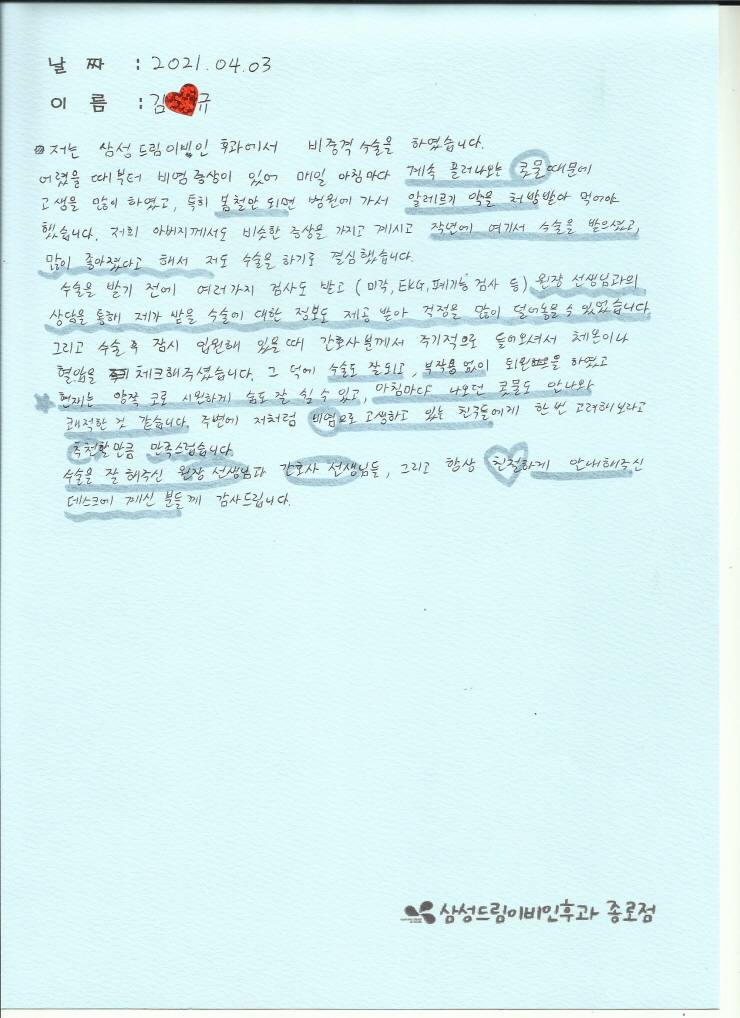 날 짜 : 2021.04.03
이 름 : 김 규
저는 삼성 드림이빈인 후과에서 비중격 수술을 하였습니다.
어렸을 때부터 비염 증상이 있어 매일 아침마다 계속 흘러나오는 콧물때문에
고생을 많이 하였고, 특히 봄철만 되면 병원에 가서 알레르기 약을 처방받아 먹어야
했습니다. 저희 아버지께서도 비슷한 증상을 가지고 계시고 작년에 여기서 수술을 받으셨고,
많이 좋아졌다고 해서 저도 수술을 하기로 결심했습니다.
수술을 받기 전에 여러가지 검사도 받고 (미각, EKG, 폐기능 검사 등) 원장 선생님과의
상담을 통해 제가 받을 수술에 대한 정보도 제공 받아 걱정을 많이 덜어놓을 수 있었습니다.
그리고 수술 후 잠시 입원해 있을 때 간호사분께서 주기적으로 들어오셔서 체온이나
혈압을 체크해주셨습니다. 그 덕에 수술도 잘 되고, 부작용 없이 퇴원을 하였고
현재는 양쪽 코로 시원하게 숨도 잘 쉴 수 있고, 아침마다 나오던 콧물도 안나와
쾌적한 것 같습니다. 주변에 저처럼 비염으로 고생하고 있는 친구들에게 한 번 고려해보라고
추천할만큼 만족스럽습니다.
수술을 잘 해주신 원장 선생님과 간호사 선생님들, 그리고 항상 친절하게 안내해주신
데스크에 계신 분들께 감사드립니다.
삼성드림이비인후과 종로점